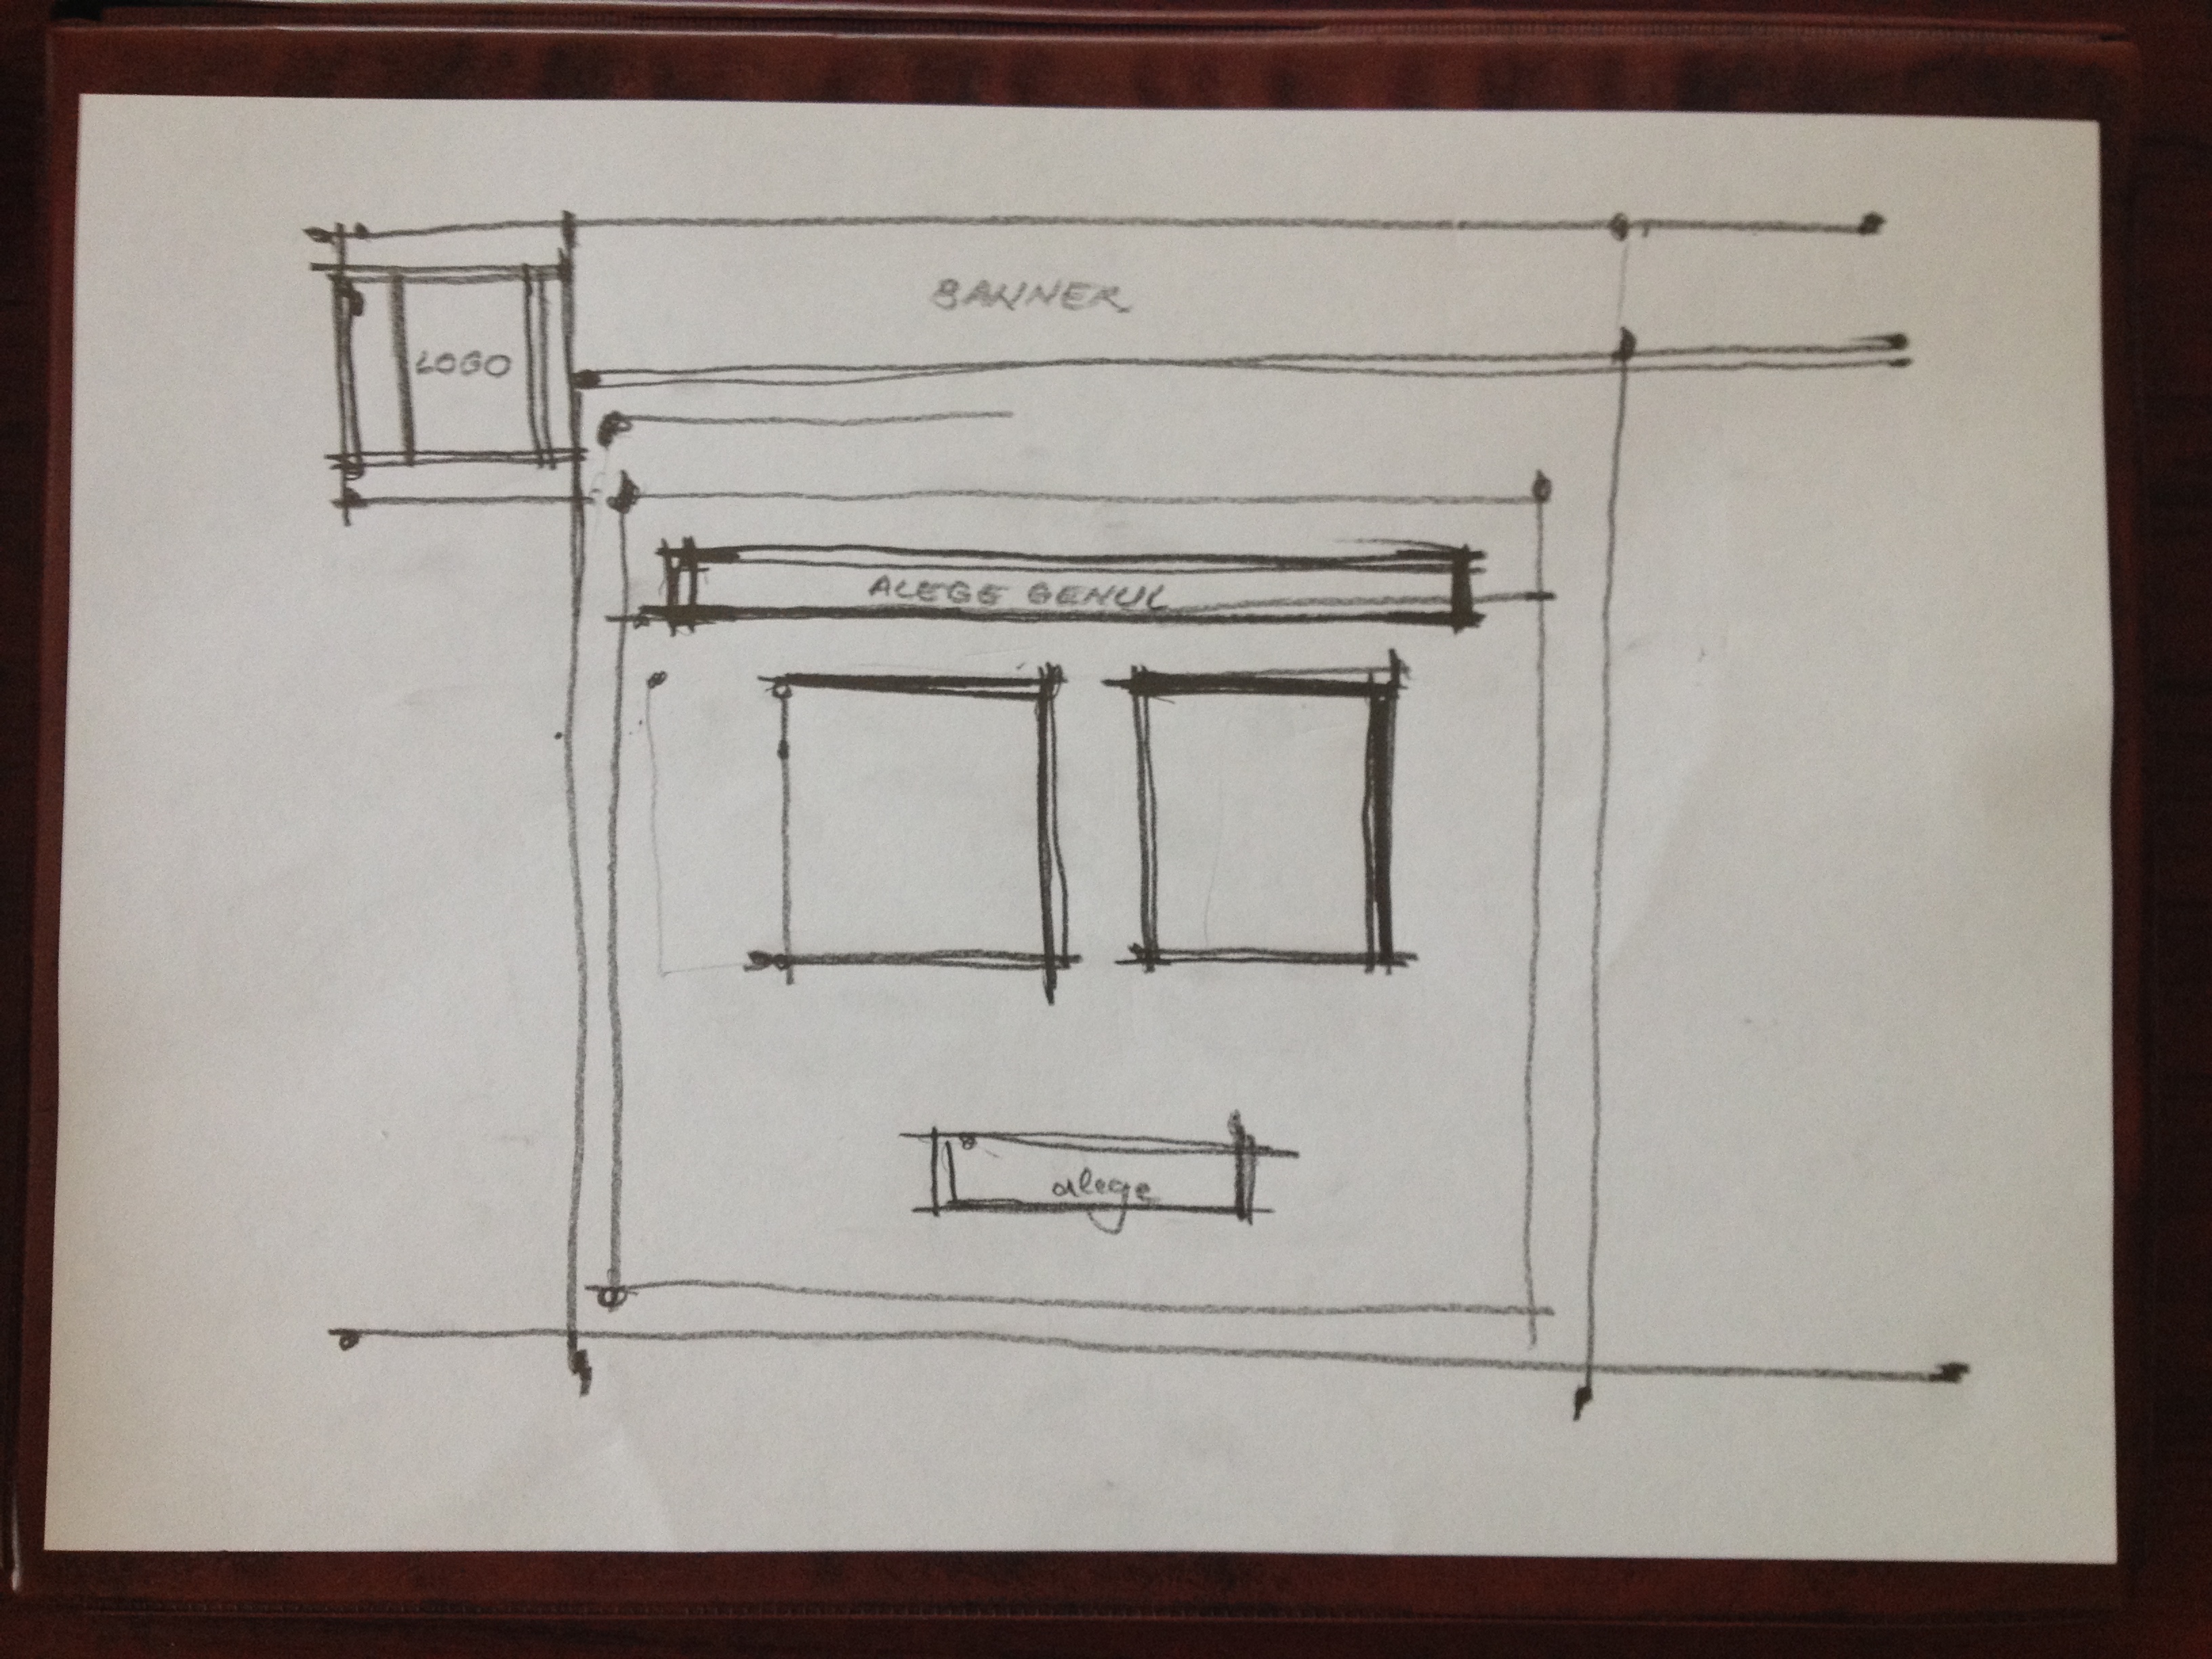 BANNER
LOGO
ALEGE GENUL
alege